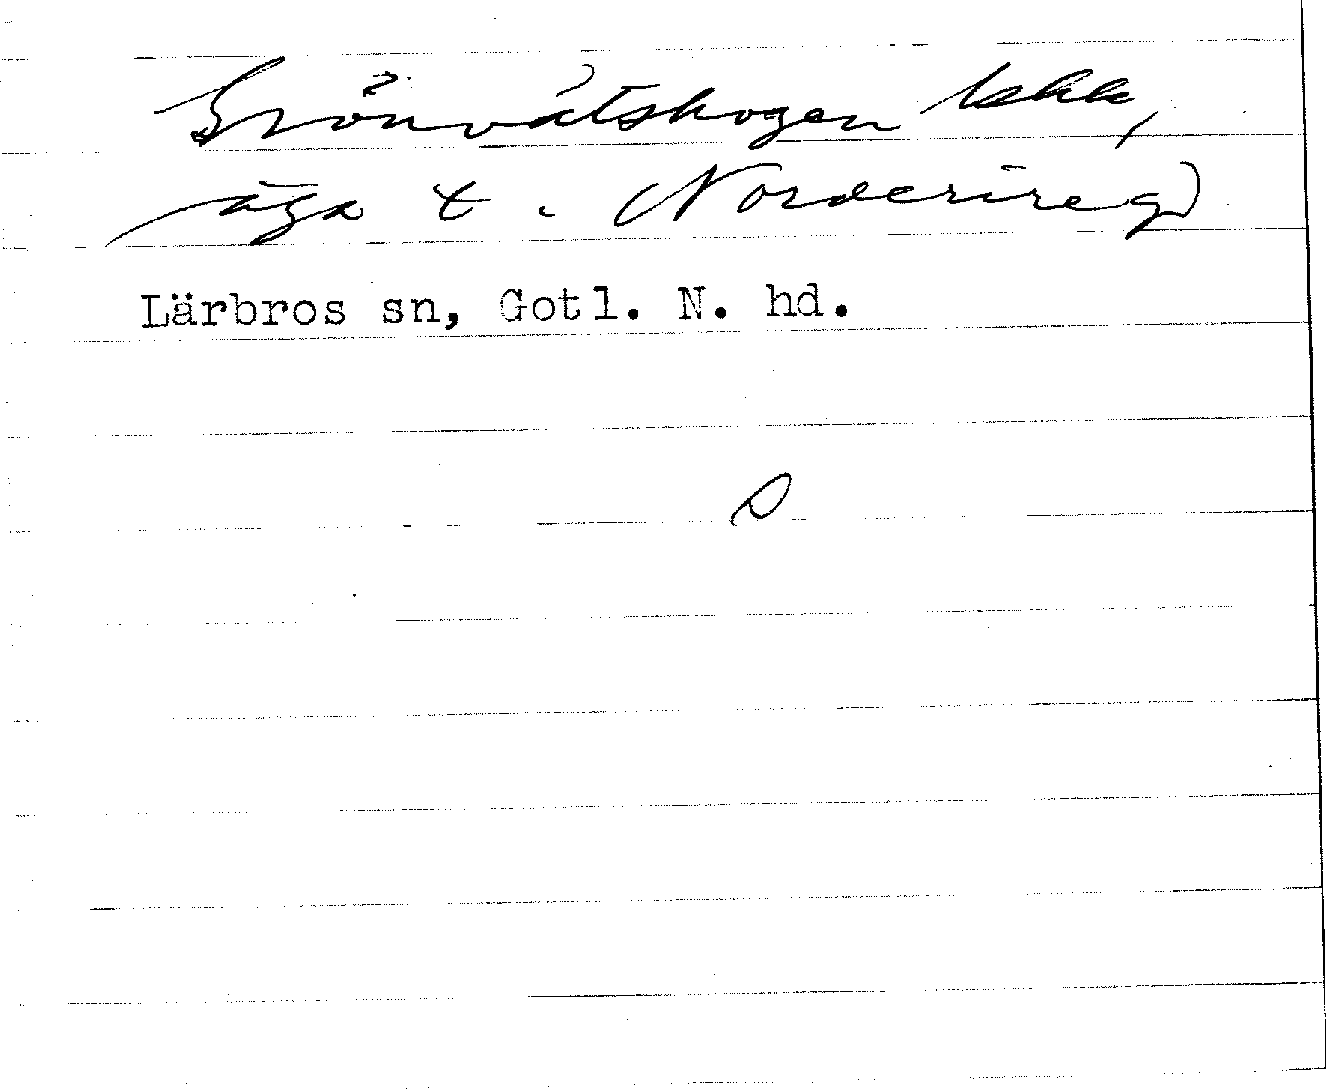 Grönvätskogen
äga t. Norderireg)
Lärbros sn, Gotl. N. hd.